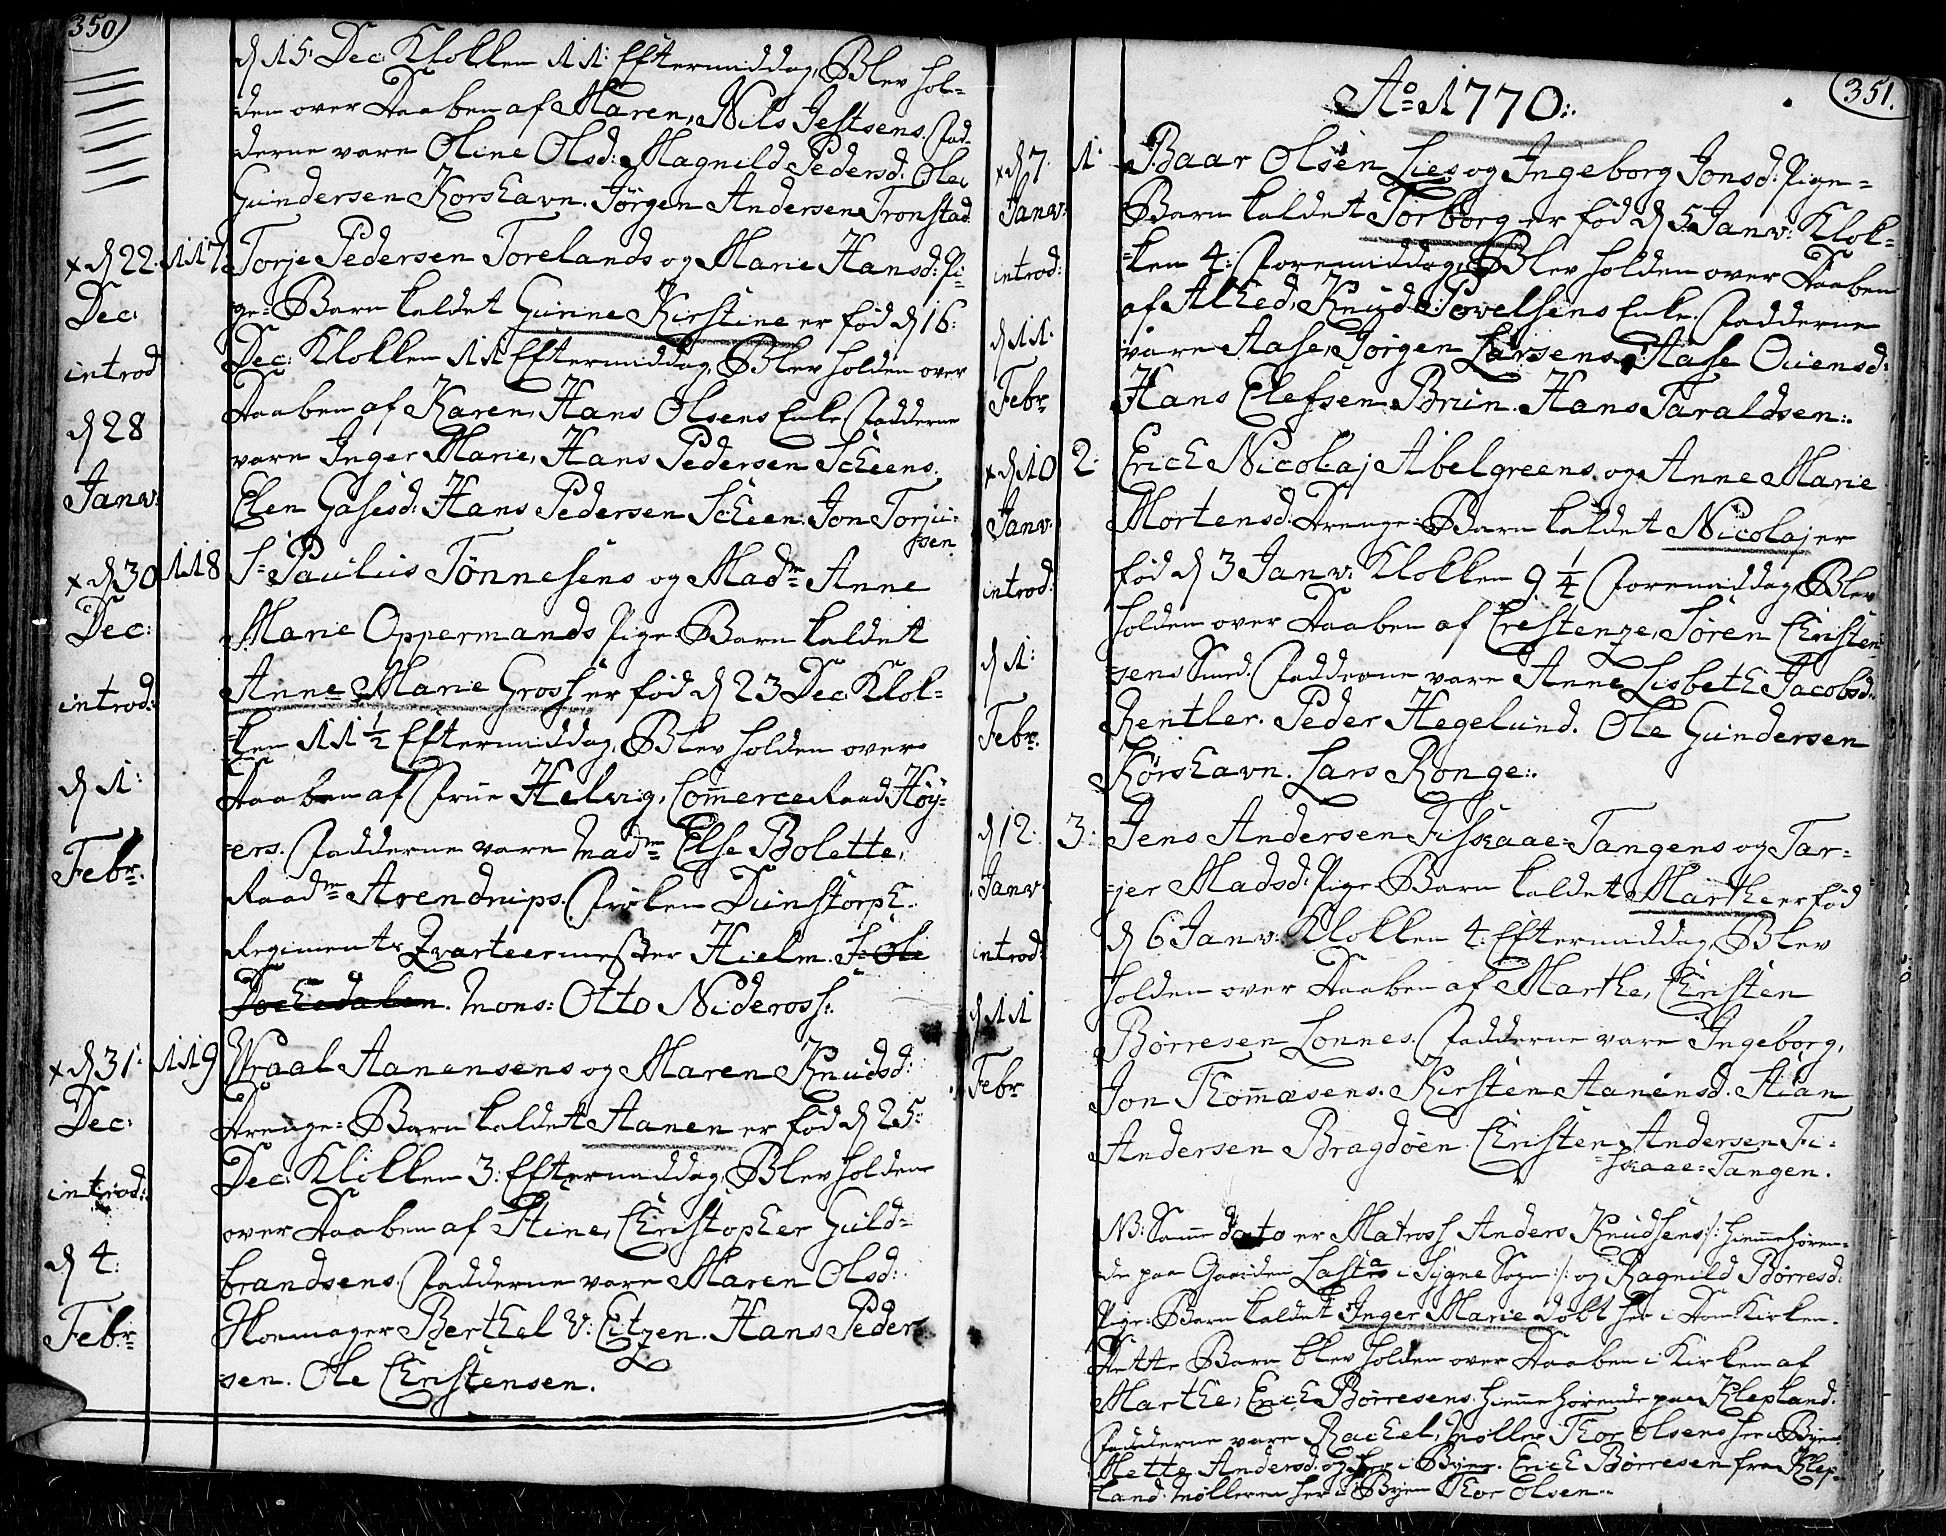 350
d 15: Dec: Klokken 11: Eftermiddag, Blev hol-
-den over Daaben af Maren, Nils Jestsens. Fad-
derne vare Oline Olsd: Magnild Pedersd: Ole
Gundersen Korshavn. Jörgen Andersen Tronstad.
x d 22: 117 Torje Pedersen Torelands og Marie Hansd: Pi-
Dec: ge-Barn kaldet Gunne Kirstine er fød d 16:
introd Dec: Klokken 11 Eftermiddag, Blev holden over
d 28 Daaben af Karen, Hans Olsens Enke. Fadderne
vare Inger Marie, Hans Pedersen Scheens.
Janv: Elen Gasesd: Hans Pedersen Scheen. Jon Torju-
sen
x d 30 118 Sr Paulus Tönnesens og Madm Anne
Dec: Marie Oppermands Pige-Barn kaldet
introd: Anne Marie Grosh er fød d 23 Dec: Klok-
-ken 11 1/2 Eftermiddag, Blev holden over
d 1: Daaben af Frue Helvig, Commerce Raad Höy-
Febr: -ers. Fadderne vare Madm Else Bolette,
Raadm Arendrups. Fröken Dunstorph.
Regiments Qvarteermester Hielm. Hr Ole
Dochedalen. Mons: Otto Niderosh.
x d 31: 119 Wraal Aanensens og Maren Knudsd:
Dec: Drenge-Barn kaldet Aanen er fød d 25:
introd: Dec: Klokken 3: Eftermiddag, Blev holden
over Daaben af Stine, Christopher Guld-
d 4: brandsens. Fadderne vare Maren Olsd:
Febr: Hormager Berthel V: Eitzen. Hans Peder-
sen. Ole Christensen.
351.
Ao 1770:
x d 7 1: Baar Olsen Lies og Ingeborg Jonsd: Pige-
Janv: Barn kaldet Torborg er fød d 5 Janv: Klok-
introd: -ken 4: Formiddag, Blev holden over Daaben
af Alhed, Knud Povelsens Enke. Fadderne
d 11: vare Aase, Jörgen Larsens. Aase Ouensd:
Febr: Hans Elefsen Brun. Hans Taraldsen.
x d 10 2: Erich Nicolaj Abelgreens og Anne Marie
Janv: Mortensd: Drenge-Barn kaldet Nicolaj er
introd: fød d 3 Janv: Klokken 9 1/4 Formiddag, Blev
holden over Daaben af Chrestenze, Sören Christen-
d 1: -sens Smed. Fadderne vare Anne Lisbeth Jacobsd:
Febr: Rentler. Peder Hegelund. Ole Gundersen
Korshavn. Lars Ronge.
d 12: 3: Jens Andersen Fiskaae-Tangens og Tar-
Janv: -jer Madsd: Pige-Barn kaldet Marthe er fød
d 6 Janv: Klokken 4: Eftermiddag, Blev
introd: holden over Daaben af Marthe, Christen
d 11 Börresen Lonnes. Fadderne vare Ingeborg,
Febr Jon Thommesens. Kirsten Aanensd. Stian
Andersen Bragdöen. Christen Andersen Fi-
-skaae-Tangen.
NB: Samme dato er Matros Anders Knudsens /: hiemmehören-
de paa Gaarden Lasta i Sygne Sogn :/ og Ragnild Börresd:
Pige-Barn kaldet Inger Marie döbt her i Dom Kirken.
Dette Barn blev holden over Daaben i Kirken af
Marthe, Erich Börresens hiemmehörende paa Klepland.
Fadderne vare Rachel, Möller Thor Olsens her i Byen.
Mette Andersd: og her i Byen. Erich Börresen fra Klep-
land. Mölleren her i Byen Thor Olsen.